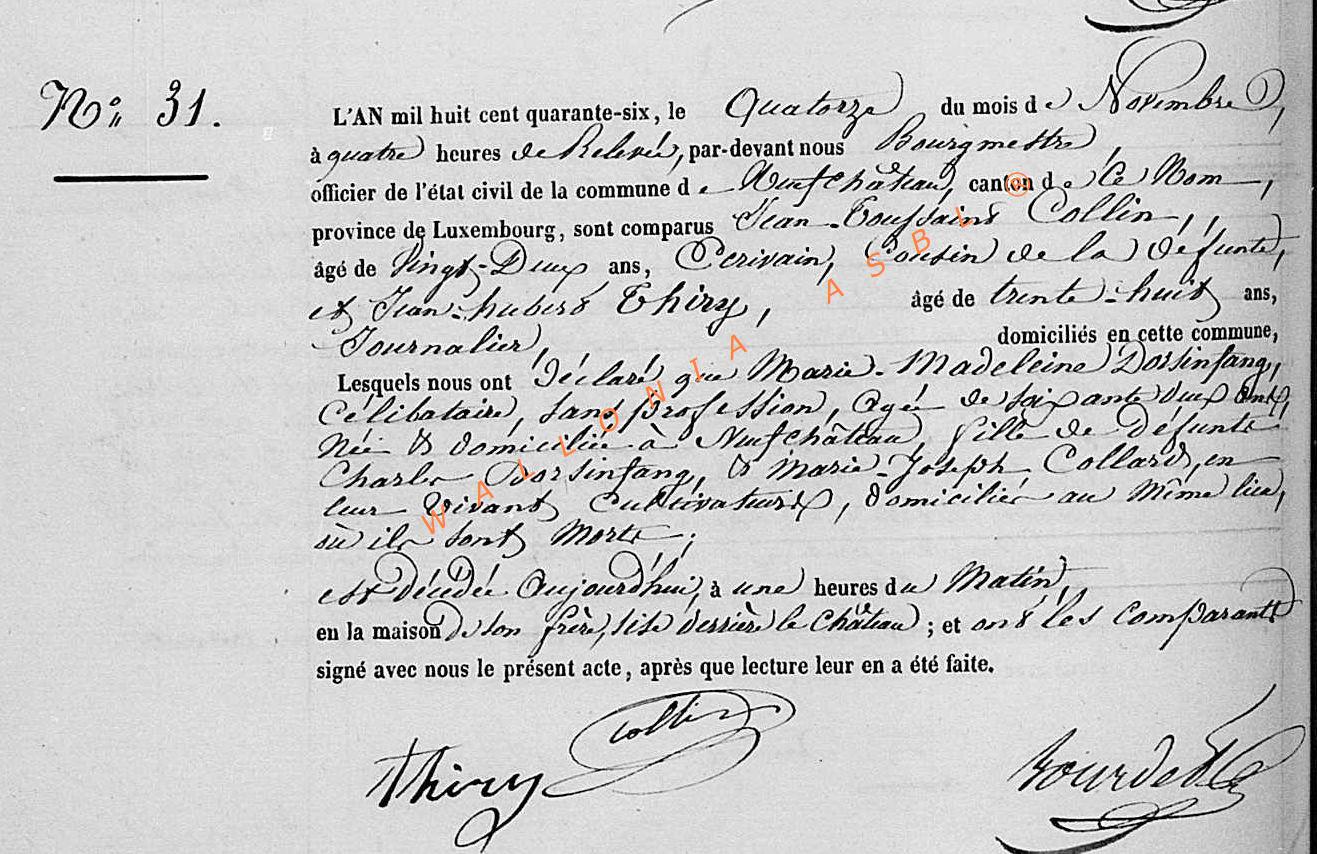 N.° 31.
L'AN mil huit cent quarante-six, le Quatorze du mois de Novembre,
à quatre heures de Relevée, par-devant nous Bourgmestre,
officier de l'état civil de la commune de Neufchâteau, canton de Ce Nom,
province de Luxembourg, sont comparus Jean-Toussaint Collin,
âgé de Vingt-Deux ans, Ecrivain, Cousin de la défunte,
et Jean-hubert Thiry, âgé de trente-huit ans,
Journalier, domiciliés en cette commune,
Lesquels nous ont déclaré que Marie-Madeleine Dorsinfang,
Célibataire, sans profession, agée de soixante deux ans,
Née & domiciliée à Neufchâteau, fille de Défunts
Charles Dorsinfang, & Marie-Joseph Collard, en
leur vivant Cultivateurs, domiciliés au Même lieu,
où ils sont Morts;
est décédée Aujourd'hui, à une heures du Matin,
en la maison de son frère, sise derrière le Château; et ont les Comparants
signé avec nous le présent acte, après que lecture leur en a été faite.
Collin
Thiry
WALLONIA ASBL ©